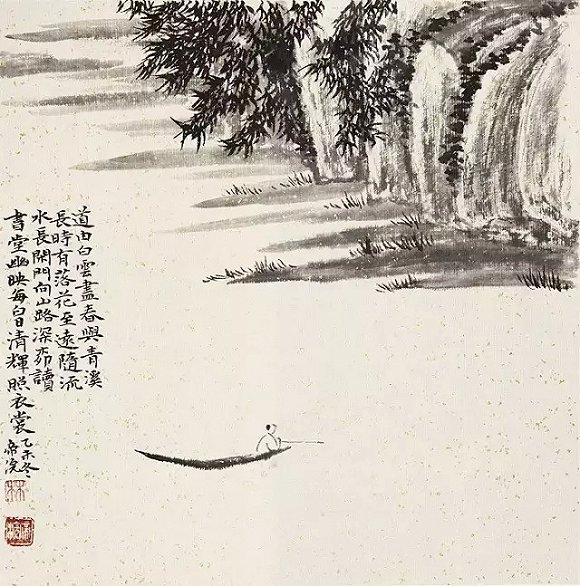 道由白雲盡春與青溪
長時有落花至遠隨流
水長閑門向山路深柳讀
書堂幽映每白日清輝照衣裳乙未冬